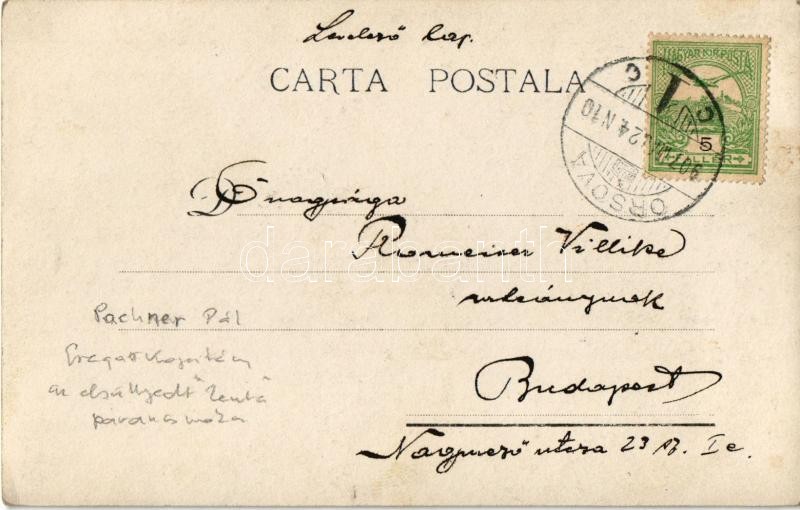 Levelező lap.
CARTA POSTALA
MAGYAR KIR. POSTA
5
ORSOVA
907 24. N10
Önagysága
Romeiser Villike
urleánynak
Budapest
Nagymező utcza 23 sz. I e.
Pachner Pál
Fregattkapitány
az elsüllyedt "Zenta"
parancsnoka
darabanth